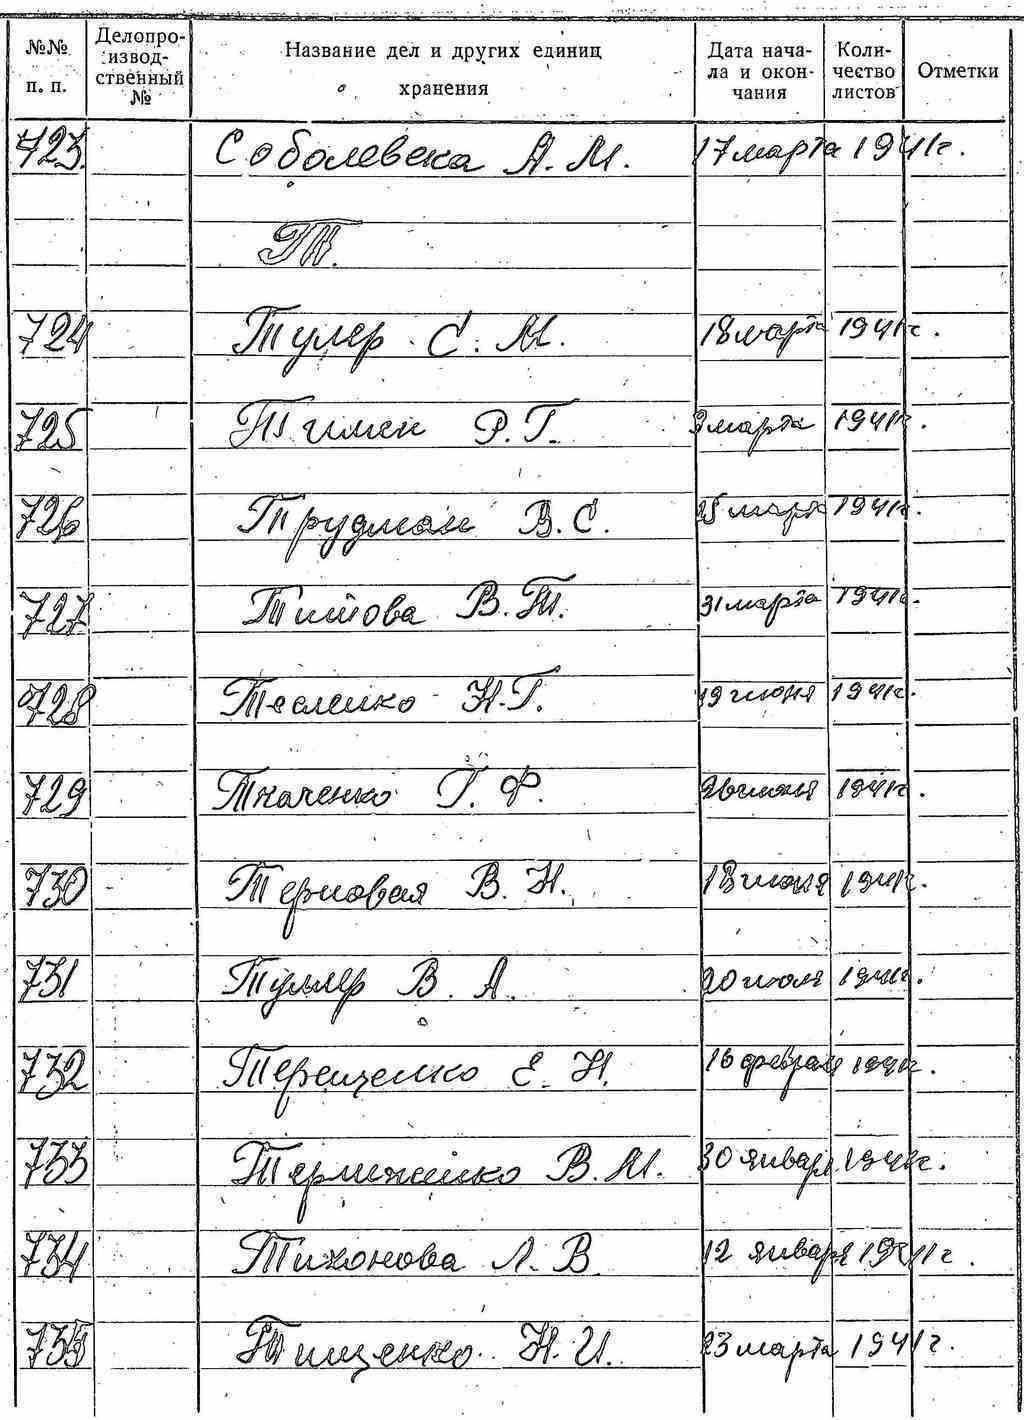 №№ п. п. Делопроизводственный № Название дел и других единиц хранения Дата начала и окончания Количество листов Отметки
723. Соболевска А. М. 17 марта 1941г.
Т.
724 Тулер С. М. 18 марта 1941г.
725 Тимен Р. Г. 3 марта 1941г.
726 Трудман В. С. 25 марта 1941г.
727 Титова В. Т. 31 марта 1941г.
728 Тесленко Н. Г. 19 июня 1941г.
729 Ткаченко Г. Ф. 26 июня 1941г.
730 Терновая В. Н. 18 июня 1941г.
731 Туллер В. А. 20 июля 1941г.
732 Терещенко Е. Н. 16 феврал 1941г.
733 В. М. 30 январ. 1941г.
734 Тихонова Л. В. 12 января 1941г.
735 Тищенко Н. И. 23 марта 1941г.